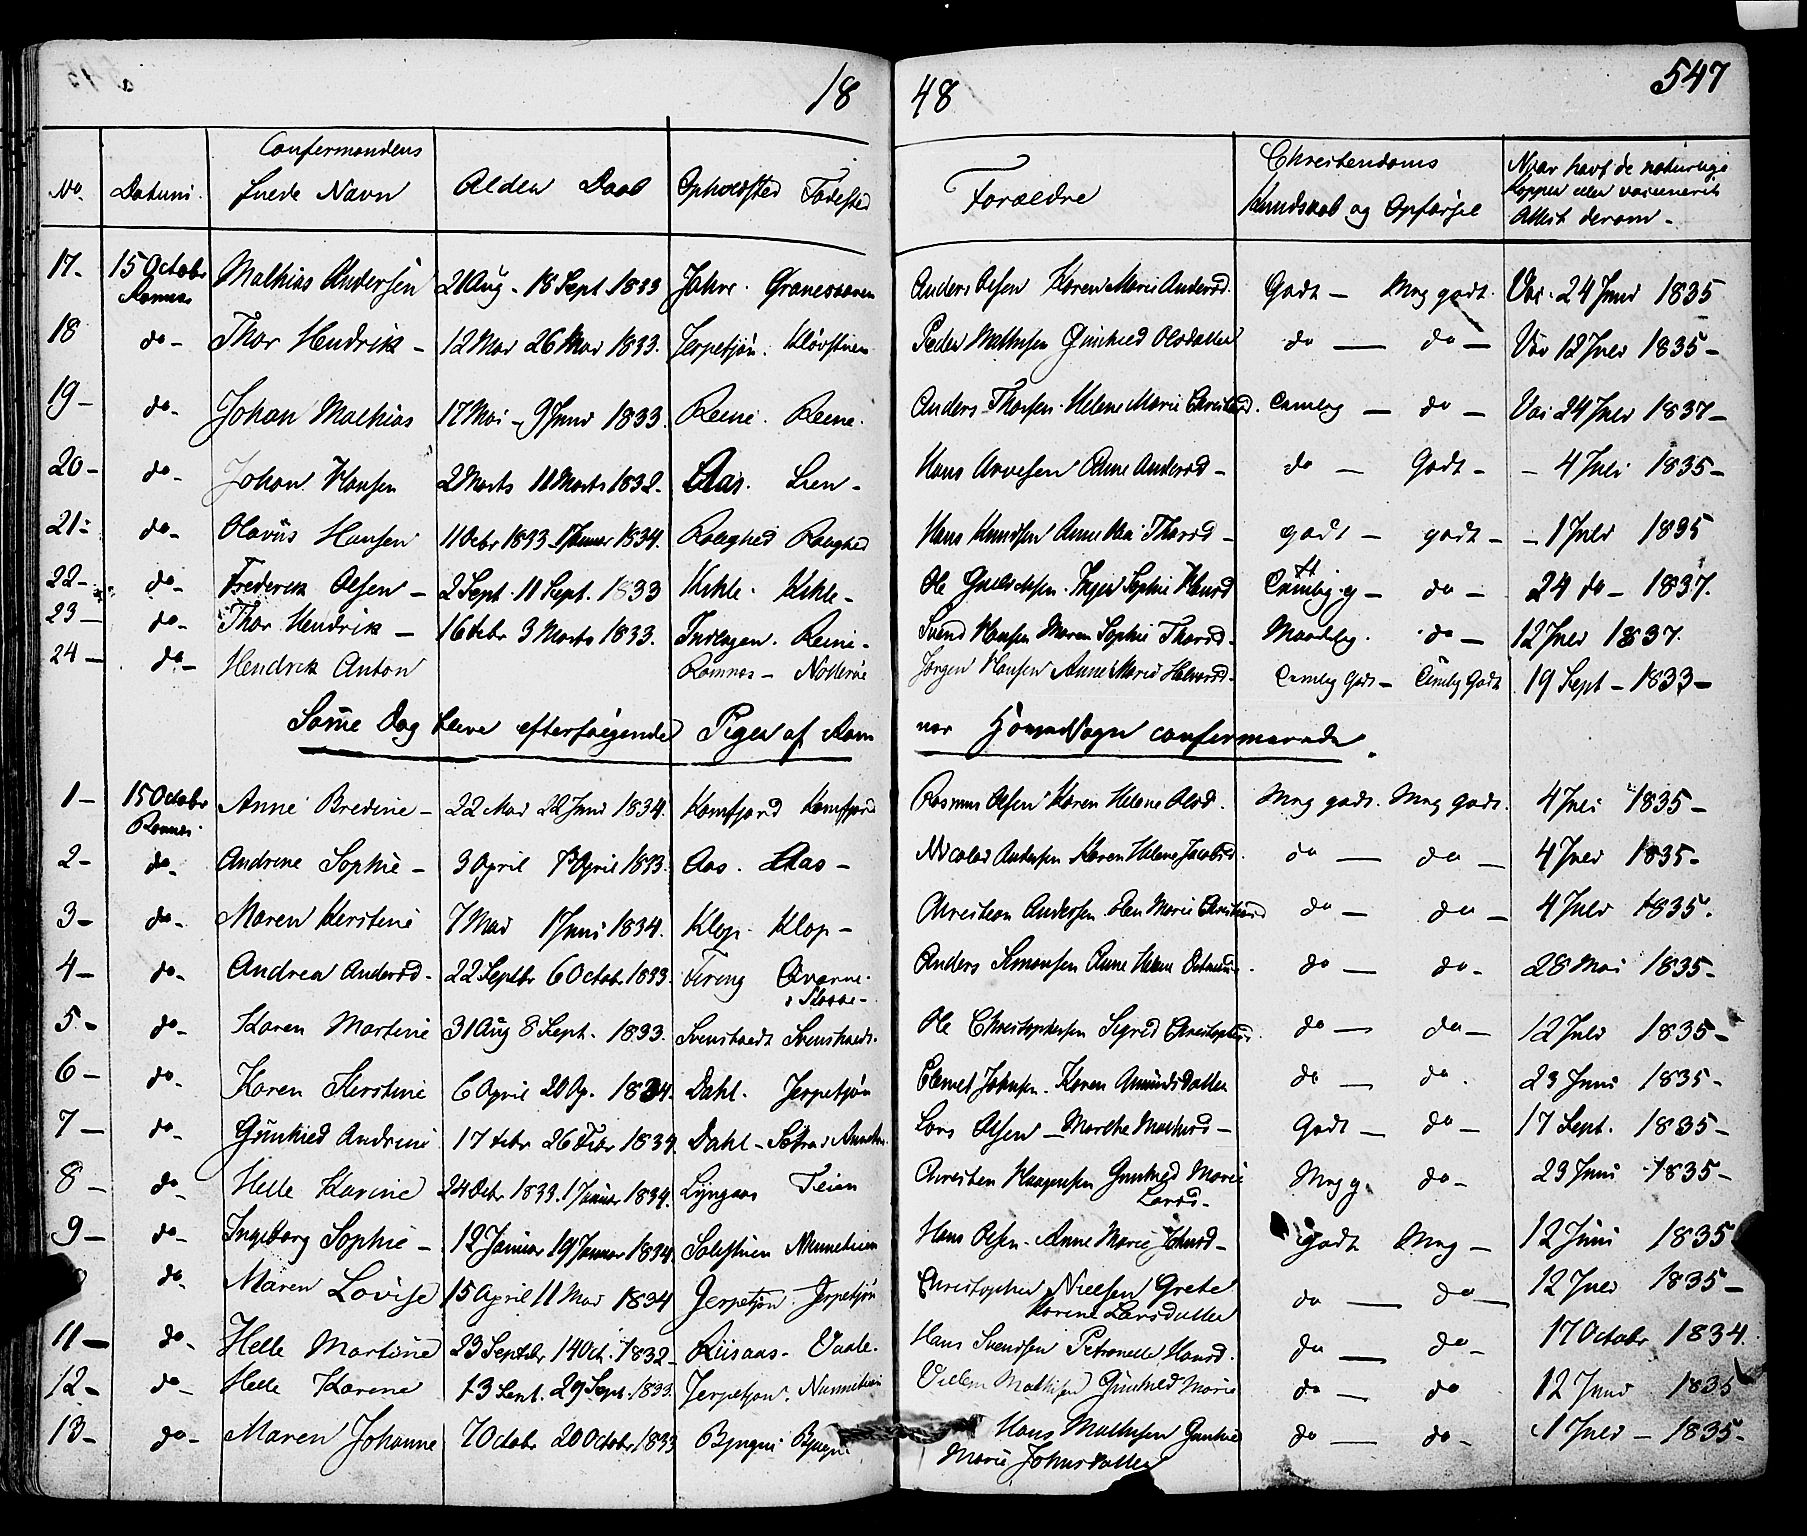 18 48 547
No. Datum. Confermandens fulde Navn Alder Daab Opholdsted Fødested Forældre Christendoms Kundskab og Opførsel Naar havt de naturlige Kopper eller vaccinerit Attest derom -
17- 15 Octobr Ramnes Mathias Andersen 21 Aug - 18 Sept. 1833 Jahre. Anders Olsen Karen Marie Andersd. Godt - Mug godt. Vac. 24 Juni 1835
18 do- Thor Hendrik - 12 Mai 26 Mai 1833. Jerpetjøn. Peder Mathisen Gunhild Olsdatter do - do - Vac 12 Juli 1835-
19- do- Johan Mathias 17 Mai - 9 Juni 1833. Reine. Reine. Anders Thorsen. Helene Marie temlig - do - Vac 24 Juli 1837-
20- do- Johan Hansen 2 Marts 11 Marts 1832- Aas. Lien- Hans Arvesen Anne Andersd- do - Godt- - 4 Juli 1835-
21- do- Olavus Hansen 11 Octbr 1833 - 1 Januar 1834. Hans Knudsen Anne Thorsd- godt - godt - - 1 Juli 1835
22- do- Frederik Olsen - 2 Sept. 11 Sept. 1833 Kihle. Kihle- Ole Inger Sophie Hansd temlig g - do - 24 do - 1837.
23- do- Thor Hendrik - 16 Febr 3 Marts 1833. Reine- Svend Hansen Maren Sophie Thorsd- Maadelig. do - 12 Juli 1837.
24- do- Hendrik Anton Ramnes - Nøtterøe Jørgen Hansen Anne Marie Halvorsd- temlig Godt - temlig Godt 19 Sept - 1833-
Same Dag bleve efterfølgende Piger af Ram nes Hoved Sogn confirmerede.
1- 15 Octobr Ramnes Anne Bredine - 22 Mai 22 Juni 1834. Komfjord Komfjord Rasmus Olsen Karen Helene Olsd. Mug godt. Mug godt. 4 Juli 1835-
2- do- Andrine Sophie - 3 April 7 April 1833. Aas. Aas- Nicolai Andersen Karen Helene Jacobsd. do - do - 4 Juli 1835-
3- do- Maren Kirstine 7 Mai 1 Juni 1834. Klop. Klop- Christian Andersen. Marie do - do - 4 Juli 1835.
4- do- Andrea Andersd. 22 Septbr 6 Octobr 1833. Firing Qvarne. Anders Simonsen Anne Helene do - do- 28 Mai 1835-
5- do- Karen Martine 31 Aug 8 Sept. 1833. Svenstvedt Svenstvedt. Ole Christophersen Sigrid do - do - 12 Juli 1835-
6- do- Karen Kirstine 6 April 20 Ap. 1834. Dahl. Jerpetjøn Johnsen. Karen Amundsdatter do - do. 23 Juni 1835-
7- do- Gunhild Andrine 17 Febr 26 Febr 1834. Dahl - Lars Olsen - Marthe Mathisd- Godt - do - 17 Sept. 1835-
8- do- Helle Karine 24 Octbr 1833. 1 Januar 1834. Lyngaas Teien Christen Haagensen Gunhild Marie Larsd- Mug g. do- 23 Juni 1835-
9- do- Ingeborg Sophie - 12 Januar 19 Januar 1834. Hans Olsen. Anne Marie Johnsd- Godt Mug - 12 Juni 1835
do- Maren Lovise 15 April 11 Mai 1834 Jerpetjøn. Jerpetjøn Christopher Nielsen Grete Karine Larsdatter do - do - 12 Juli 1835-
11- do- Helle Martine 23 Septbr 14 Oct. 1832- Riisaas- Vaale. Hans Svendsen Petronelle Hansd. do - do- 17 Octobr 1834.
12- do- Helle Karine 13 Sept. 29 Sept. 1833. Jerpetjøn. Villum Mathisen Gunhild Marie do - do 12 Juni 1835
13- do- Maren Johanne 7 Octobr 20 Octobr 1833 Hans Mathisen Gunhild Marie Johnsdatter do - do- 1 Juli - 1835-